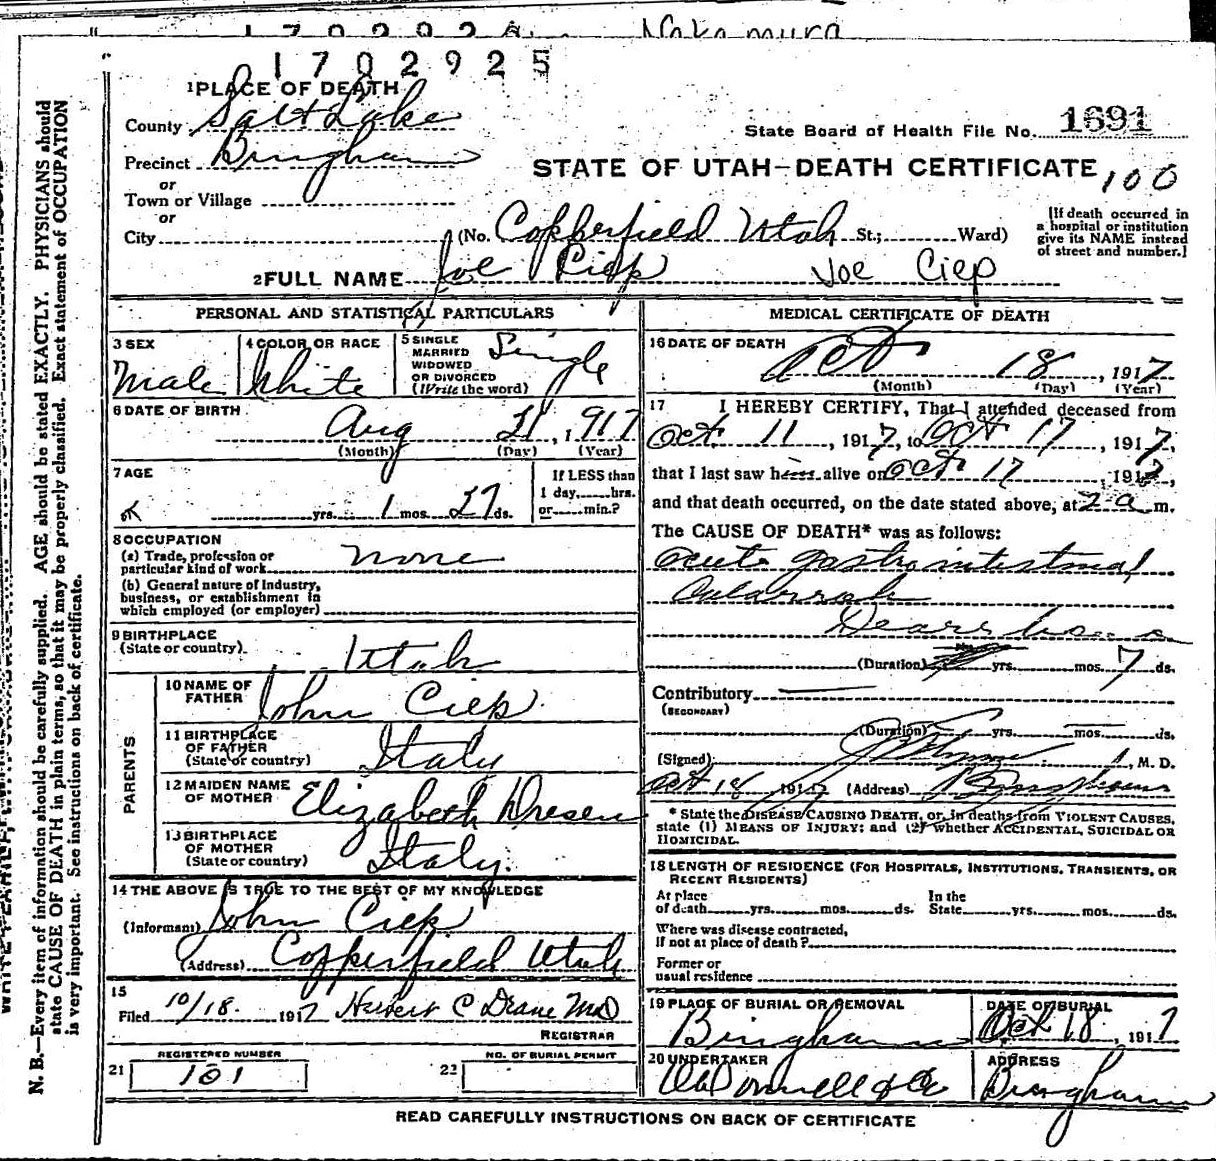 1702925
1 PLACE OF DEATH
County Salt Lake
State Board of Health File No. 1691
Precinct Bingham
STATE OF UTAH—DEATH CERTIFICATE
100
or
Town or Village
or
City (No. Copperfield Utah St.; Ward)
[If death occurred in
a hospital or institution
give its NAME instead
of street and number.]
2 FULL NAME Joe Ciep Joe Ciep
PERSONAL AND STATISTICAL PARTICULARS
3 SEX
Male
4 COLOR OR RACE
White
5 SINGLE
MARRIED
WIDOWED
OR DIVORCED
(Write the word)
Single
6 DATE OF BIRTH
Aug 21, 1917
(Month) (Day) (Year)
7 AGE
yrs. 1 mos. 27 ds.
If LESS than
1 day, hrs.
or min.?
8 OCCUPATION
(a) Trade, profession or
particular kind of work none
(b) General nature of Industry,
business, or establishment in
which employed (or employer)
9 BIRTHPLACE
(State or country) Utah
PARENTS
10 NAME OF
FATHER John Ciep
11 BIRTHPLACE
OF FATHER
(State or country) Italy
12 MAIDEN NAME
OF MOTHER Elizabeth Dresen
13 BIRTHPLACE
OF MOTHER
(State or country) Italy.
14 THE ABOVE IS TRUE TO THE BEST OF MY KNOWLEDGE
(Informant) John Ciep
(Address) Copperfield Utah
15
Filed 10/18. 1917 Herbert C Deane MD
REGISTRAR
REGISTERED NUMBER
21 101
NO. OF BURIAL PERMIT
22
MEDICAL CERTIFICATE OF DEATH
16 DATE OF DEATH
Oct 18, 1917
(Month) (Day) (Year)
17 I HEREBY CERTIFY, That I attended deceased from
Oct 11, 1917, to Oct 17, 1917,
that I last saw him alive on Oct 17, 1917,
and that death occurred, on the date stated above, at 2 a m.
The CAUSE OF DEATH* was as follows:
acute gastrointestinal
Catarrah
(Duration) yrs. mos. 7 ds.
Contributory
(SECONDARY)
(Duration) yrs. mos. ds.
(Signed) , M. D.
Oct 18 1917 (Address) Bingham
* State the DISEASE CAUSING DEATH, or, in deaths from VIOLENT CAUSES,
state (1) MEANS OF INJURY; and (2) whether ACCIDENTAL, SUICIDAL OR
HOMICIDAL.
18 LENGTH OF RESIDENCE (FOR HOSPITALS, INSTITUTIONS, TRANSIENTS, OR
RECENT RESIDENTS)
At place
of death yrs. mos. ds.
In the
State yrs. mos. ds.
Where was disease contracted,
if not at place of death?
Former or
usual residence
19 PLACE OF BURIAL OR REMOVAL
Bingham
DATE OF BURIAL
Oct 18, 1917
20 UNDERTAKER
O'Donnell & Co
ADDRESS
Bingham
READ CAREFULLY INSTRUCTIONS ON BACK OF CERTIFICATE
N. B.—Every item of information should be carefully supplied. AGE should be stated EXACTLY. PHYSICIANS should
state CAUSE OF DEATH in plain terms, so that it may be properly classified. Exact statement of OCCUPATION
is very important. See instructions on back of certificate.